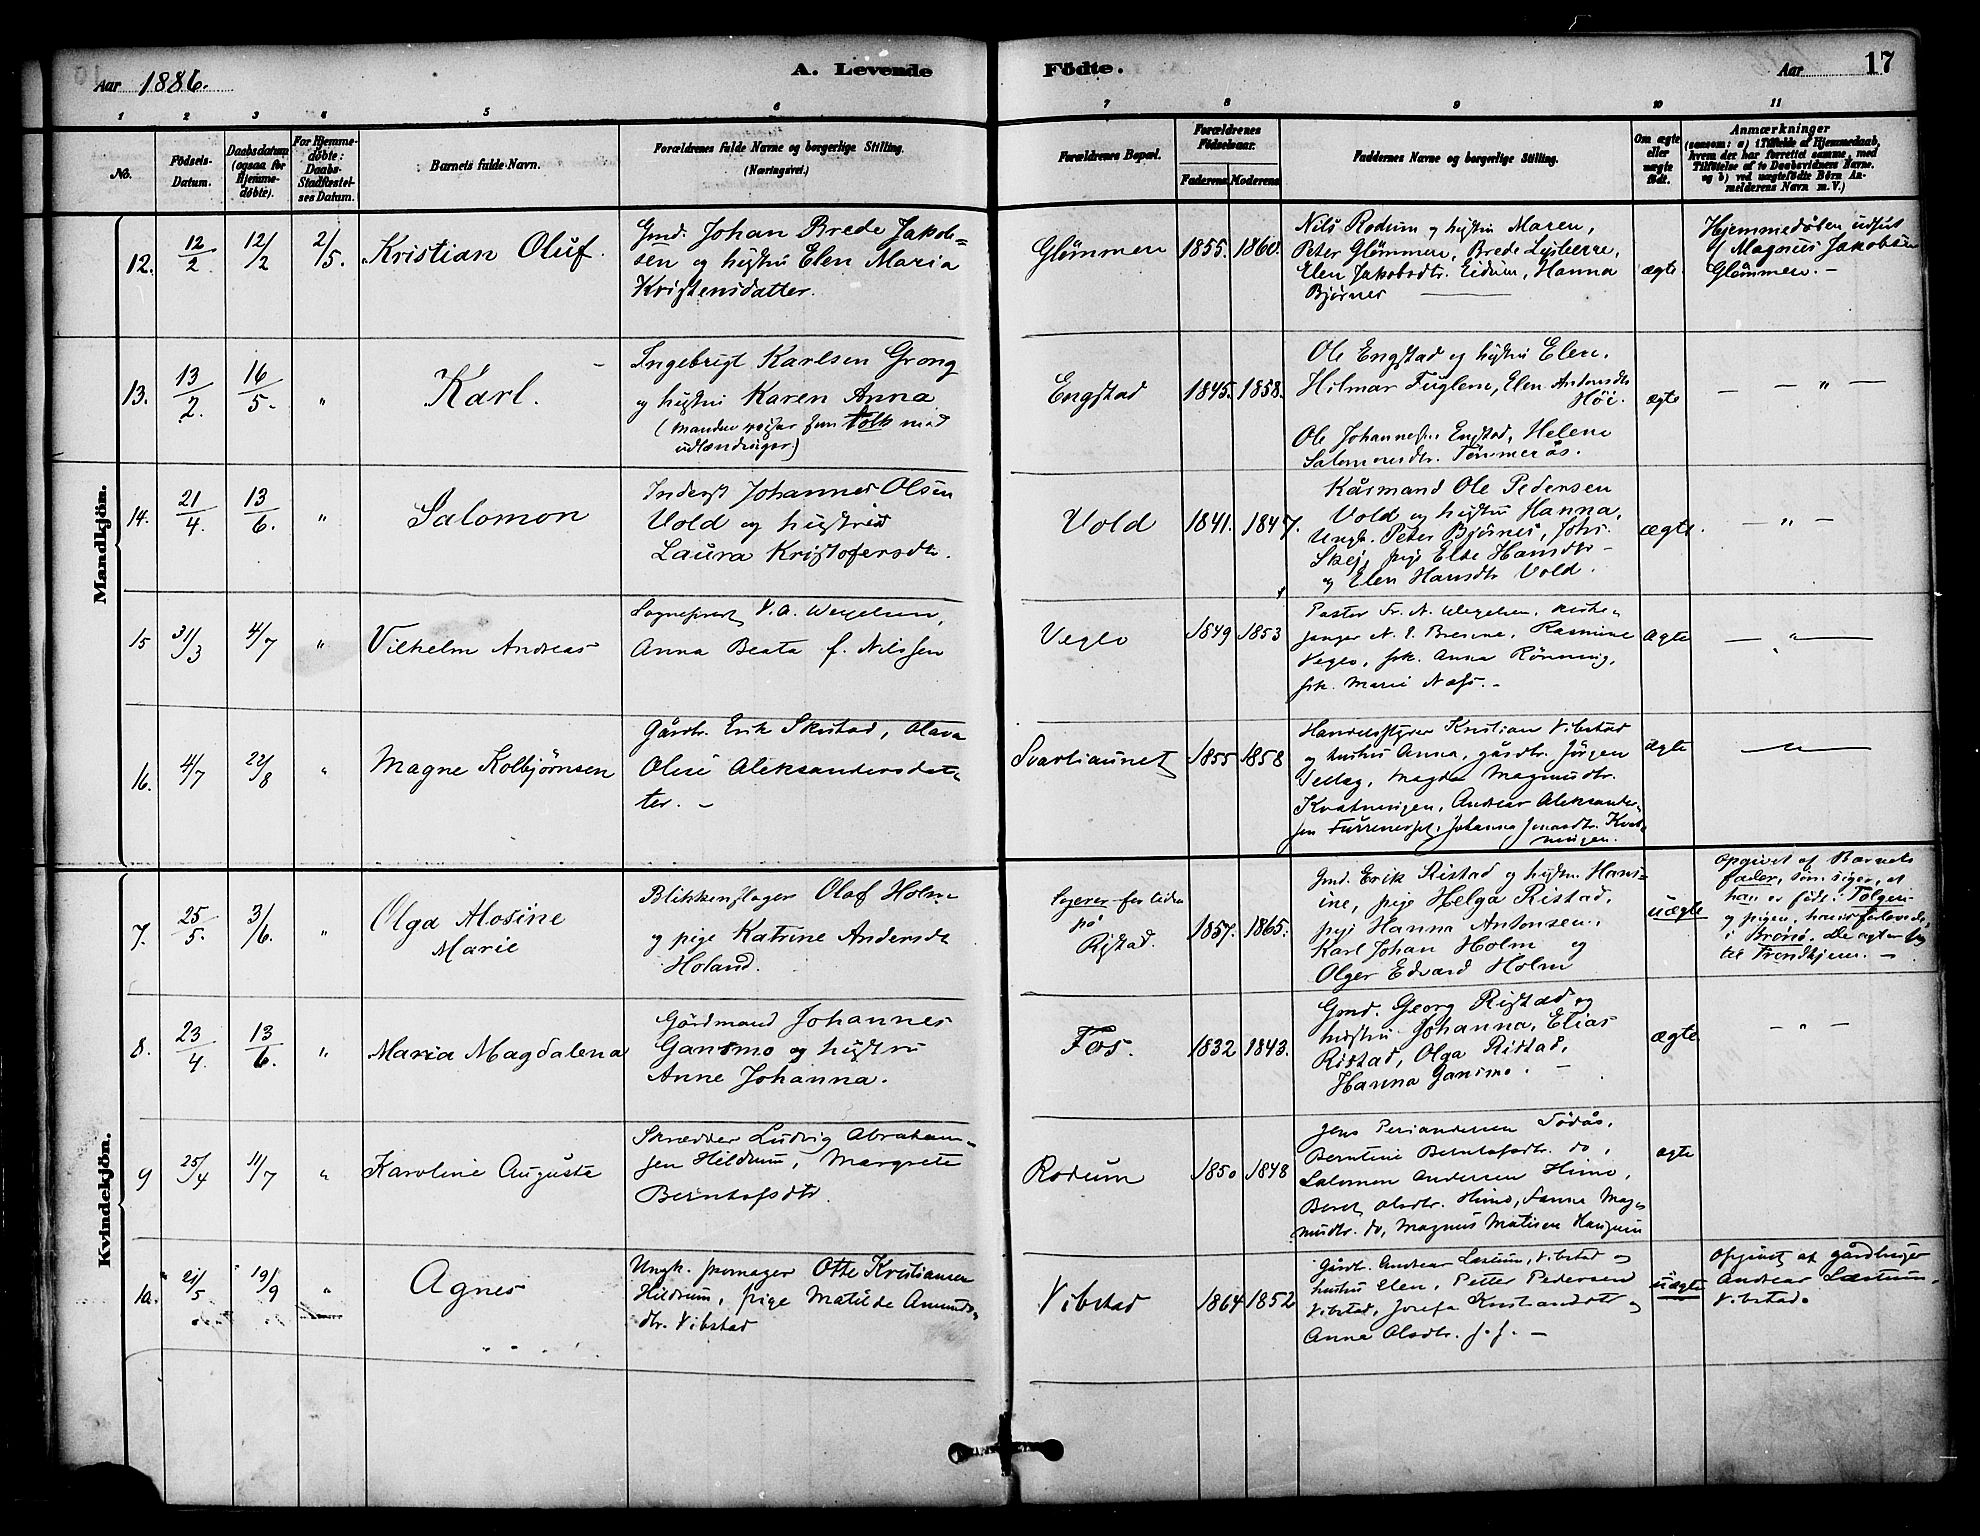 Aar 1886.
A. Levende Födte.
Aar 17
1 2 3 4 5 6 7 8 9 10 11
No.
Födsels-Datum.
Daabsdatum (ogsaa for Hjemmedöbte).
For Hjemmedöbte: Daabs-Stadfæstelses Datum.
Barnets fulde Navn.
Forældrenes fulde Navne og borgerlige Stilling.
(Næringsvei.)
Forældrenes Bopæl.
Forældrenes Födselsaar.
Faderens Moderens
Faddernes Navne og borgerlige Stilling.
Om ægte eller uægte födt.
Anmærkninger
(saasom: a) i Tilfælde af Hjemmedaab, hvem der har forrettet samme, med Tilföielse af to Daabsvidners Navne, og b) ved uægtefödte Börn Anmelderens Navn m. V.)
Mandkjön.
12. 12/2 12/2 2/5. Kristian Oluf.
Gmd. Johan Brede Jakob-
sen og hustru Elen Maria
Kristensdatter.
Glömmen 1855. 1860.
Nils Rodum og hustru Maren,
Peter Glömmen, Brede
Elen Jakobsdtr. Eidum, Hanna
Bjørnes
ægte.
Hjemmedøben udført
af Magnus Jakobsen
Glömmen. -
13. 13/2. 16/5. " Karl.
Ingebrigt Karlsen Grong
og hustru Karen Anna
(Manden reiser som tolk med
udlændinger)
Engstad 1845. 1858.
Ole Engstad og hustru Elen.
Hilmar Fuglem, Elen Antonsdtr
Höi.
Ole Johannessen Engstad, Helene
Salomonsdtr. Tömmerås.
ægte
— — " —
14. 21/4. 13/6. " Salomon
Inderst Johannes Olsen
Vold og hustru
Laura Kristofersdtr.
Vold 1841. 1847.
Kårmand Ole Pedersen
Vold og hustru Hanna,
Ungk. Peter Bjørnes, Johs.
pige Else Hansdtr
og Elen Hansdtr Vold.
ægte.
— " —
15 31/3 4/7 " Vilhelm Andreas
Sogneprest V. A. Wexelsen,
Anna Beata f. Nilssen
Veglo 1849 1853
Pastor Fr. N. Wexelsen, kirke-
sanger N. Rasmine
Veglo, frk. Anna Rönning,
frk. Marie Næss. -
ægte
— " —
16. 4/7 22/8 " Magne Kolbjørnsen
Gårdbr. Erik Skistad, Olava
Olise Aleksandersdat-
ter. -
Svartiaunet 1855 1858
Kristian Vibstad
og hustru Anna, gårdbr. Jörgen
Magda Magnusdtr.
Kvatningen, Andreas Aleksander-
sen Johanna Kvat-
ningen.
ægte
— " —
Kvindekjön.
7. 25/5. 3/6. " Olga Alosine
Marie
Blikkenslager Olaf Holm
og pige Katrine Andersdtr
Holand.
Logerer for tiden
på
Ristad.
1857. 1865.
Gmd. Erik Ristad og hustru Hans-
ine, pige Helga Ristad,
pige Hanna Antonsen,
Karl Johan Holm og
Olger Edvard Holm
uægte
Opgivet af Barnets
fader, som siger, at
han er födt i
og pigen, hans forlovede,
i Brönö. De agter sig
til Trondhjem. -
8. 23/4. 13/6. " Maria Magdalena
Gårdmand Johannes
Gansmo og hustru
Anne Johanna.
Fos. 1832 1843.
Gmd. Georg Ristad og
hustru Johanna, Elias
Ristad, Olga Ristad,
Hanna Gansmo. -
ægte
— " —
9 25/4 11/7 " Karoline Auguste
Skrædder Ludvig Abraham-
sen Hildrum, Margrete
Berntofsdtr.
Rodum 1850 1848
Jens
Berntine Berntofsdtr. do,
Salomon Andersen Himo,
Beret Olsdtr. Himo, Fanne Mag-
nusdtr. do, Magnus Matisen
ægte
10. 21/5 19/9 " Agnes
Ungk. Otte Kristiansen
Hildrum, pige Matilde Amunds-
dtr. Vibstad
Vibstad 1864 1852
Gårdbr. Andreas Vibstad og
hustru Elen, Petter Pedersen
Vibstad, Josefa Kristiansdtr og
Anna Olsdtr. —
uægte
Opgivet af gårdbruger
Andreas
Vibstad.